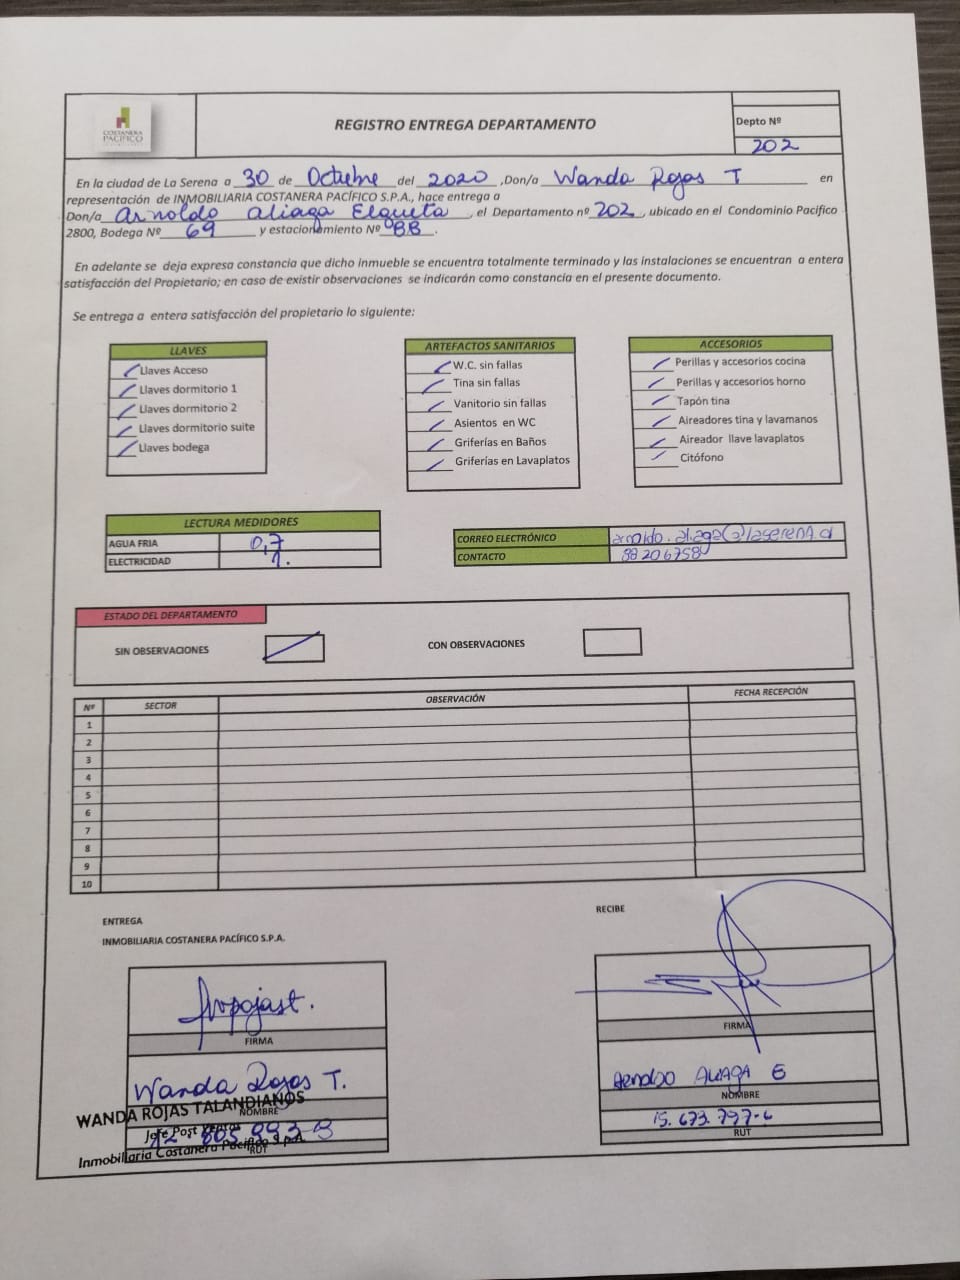 COSTANERA
PACÍFICO
REGISTRO ENTREGA DEPARTAMENTO
Depto Nº
202
En la ciudad de La Serena a 30 de Octubre del 2020 ,Don/a Wanda Rojas T en
representación de INMOBILIARIA COSTANERA PACÍFICO S.P.A., hace entrega a
Don/a Arnoldo Aliaga Elgueta , el Departamento nº 202 , ubicado en el Condominio Pacifico
2800, Bodega Nº 69 y estacionamiento Nº 88 .
En adelante se deja expresa constancia que dicho inmueble se encuentra totalmente terminado y las instalaciones se encuentran a entera
satisfacción del Propietario; en caso de existir observaciones se indicarán como constancia en el presente documento.
Se entrega a entera satisfacción del propietario lo siguiente:
LLAVES
Llaves Acceso
Llaves dormitorio 1
Llaves dormitorio 2
Llaves dormitorio suite
Llaves bodega
ARTEFACTOS SANITARIOS
W.C. sin fallas
Tina sin fallas
Vanitorio sin fallas
Asientos en WC
Griferías en Baños
Griferías en Lavaplatos
ACCESORIOS
Perillas y accesorios cocina
Perillas y accesorios horno
Tapón tina
Aireadores tina y lavamanos
Aireador llave lavaplatos
Citófono
LECTURA MEDIDORES
AGUA FRIA 0,7
ELECTRICIDAD 1.
CORREO ELECTRÓNICO arnoldo.aliaga@laserena.cl
CONTACTO 88206758
ESTADO DEL DEPARTAMENTO
SIN OBSERVACIONES
CON OBSERVACIONES
Nº SECTOR OBSERVACIÓN FECHA RECEPCIÓN
1
2
3
4
5
6
7
8
9
10
ENTREGA
INMOBILIARIA COSTANERA PACÍFICO S.P.A.
RECIBE
FIRMA
Wanda Rojas T.
WANDA ROJAS TALANDIANOS
NOMBRE
Jefe Post Ventas
Inmobiliaria Costanera Pacífico S.p.A.
RUT
FIRMA
Arnoldo ALIAGA E
NOMBRE
15.673.797-6
RUT